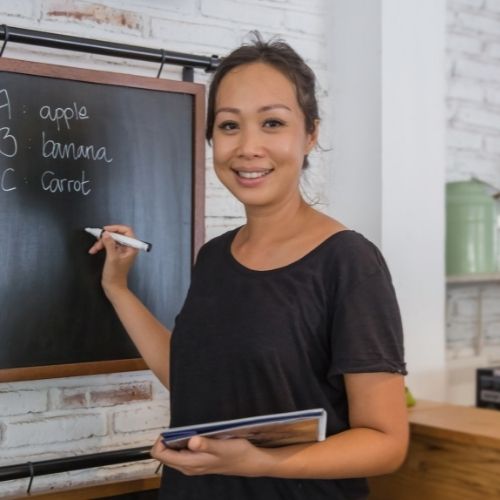 A: apple
B: banana
C: Carrot